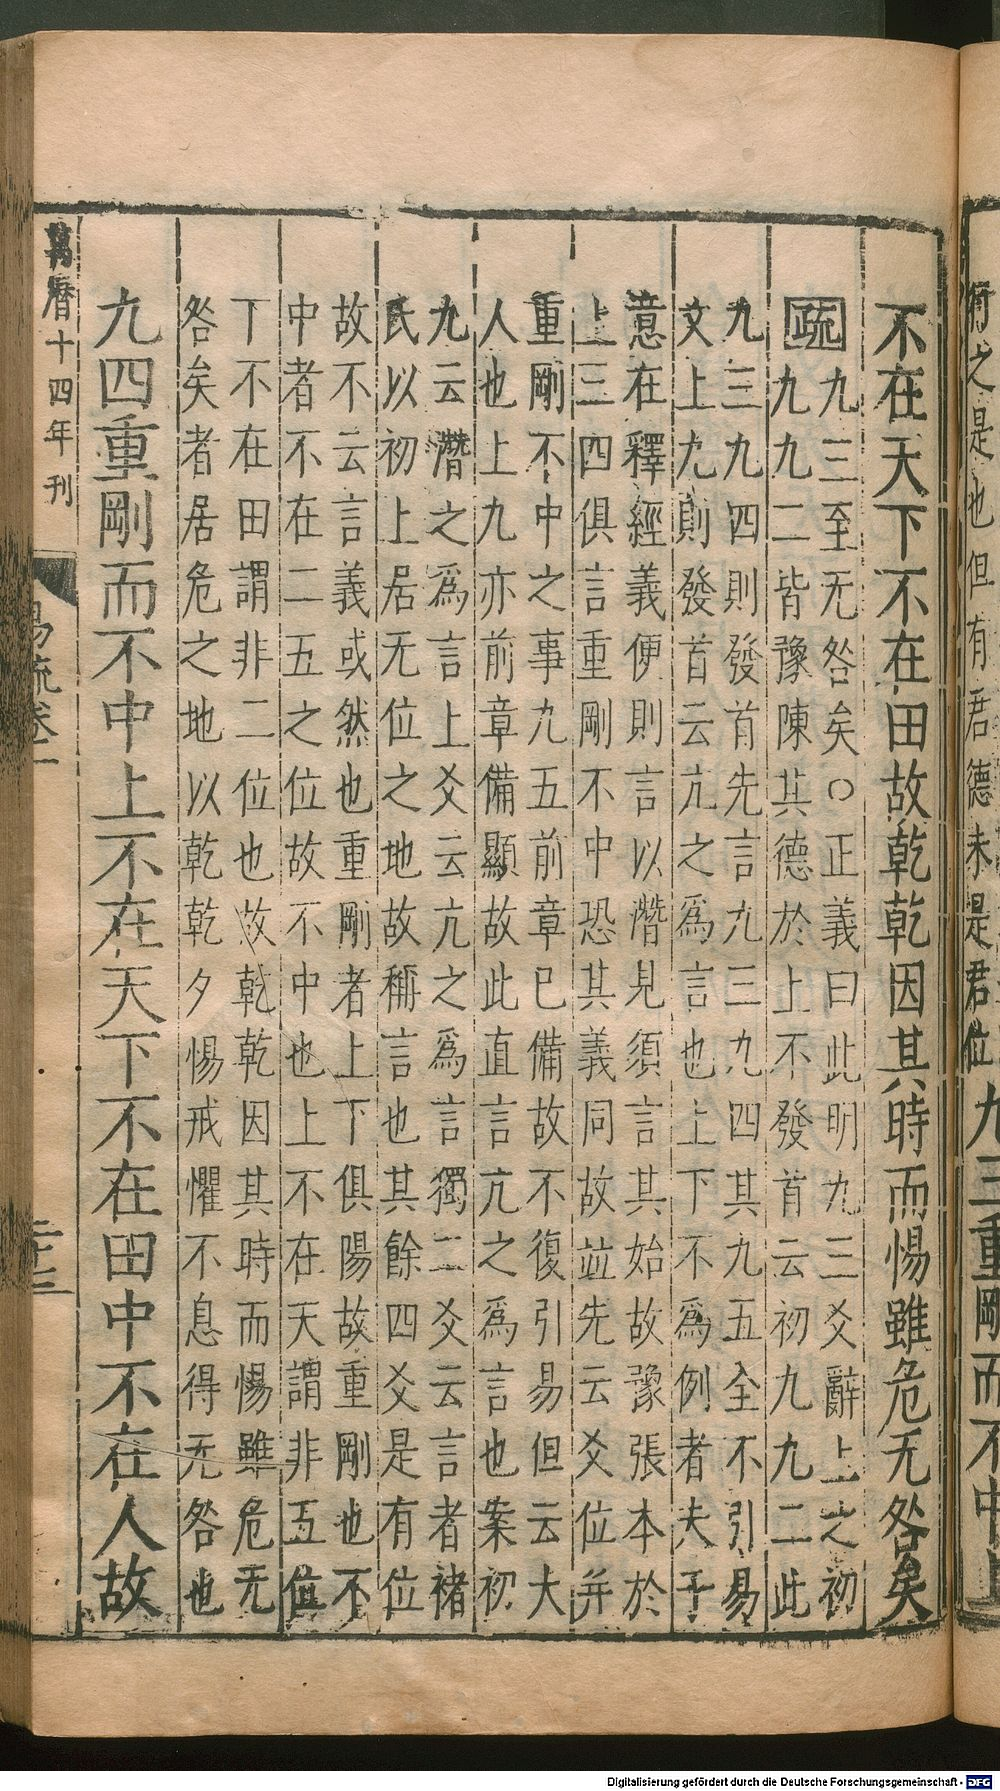 不在天下不在田故乾乾因其時而惕雖危无咎矣
疏
九三至无咎矣○正義曰此明九三爻辭上之初
九九二皆豫陳其德於上不發首云初九九二此
九三九四則發首先言九三九四其九五全不引易
文上九則發首云亢之為言也上下不為例者夫子
意在釋經義便則言以潛見須言其始故豫張本於
上三四俱言重剛不中恐其義同故並先云爻位并
重剛不中之事九五前章已備故不復引易但云大
人也上九亦前章備顯故此直言亢之為言也案初
九云潛之為言上爻云亢之為言獨二爻云言者褚
氏以初上居无位之地故稱言也其餘四爻是有位
故不云言義或然也重剛者上下俱陽故重剛也不
中者不在二五之位故不中也上不在天謂非五位
丁不在田謂非二位也故乾乾因其時而惕雖危无
咎矣者居危之地以乾乾夕惕戒懼不息得无咎也
九四重剛而不中上不在天下不在田中不在人故
萬曆十四年刊
易疏卷一
二十三
之是也但有君德未是君位
九三重剛而不中上
Digitalisierung gefördert durch die Deutsche Forschungsgemeinschaft - DFG